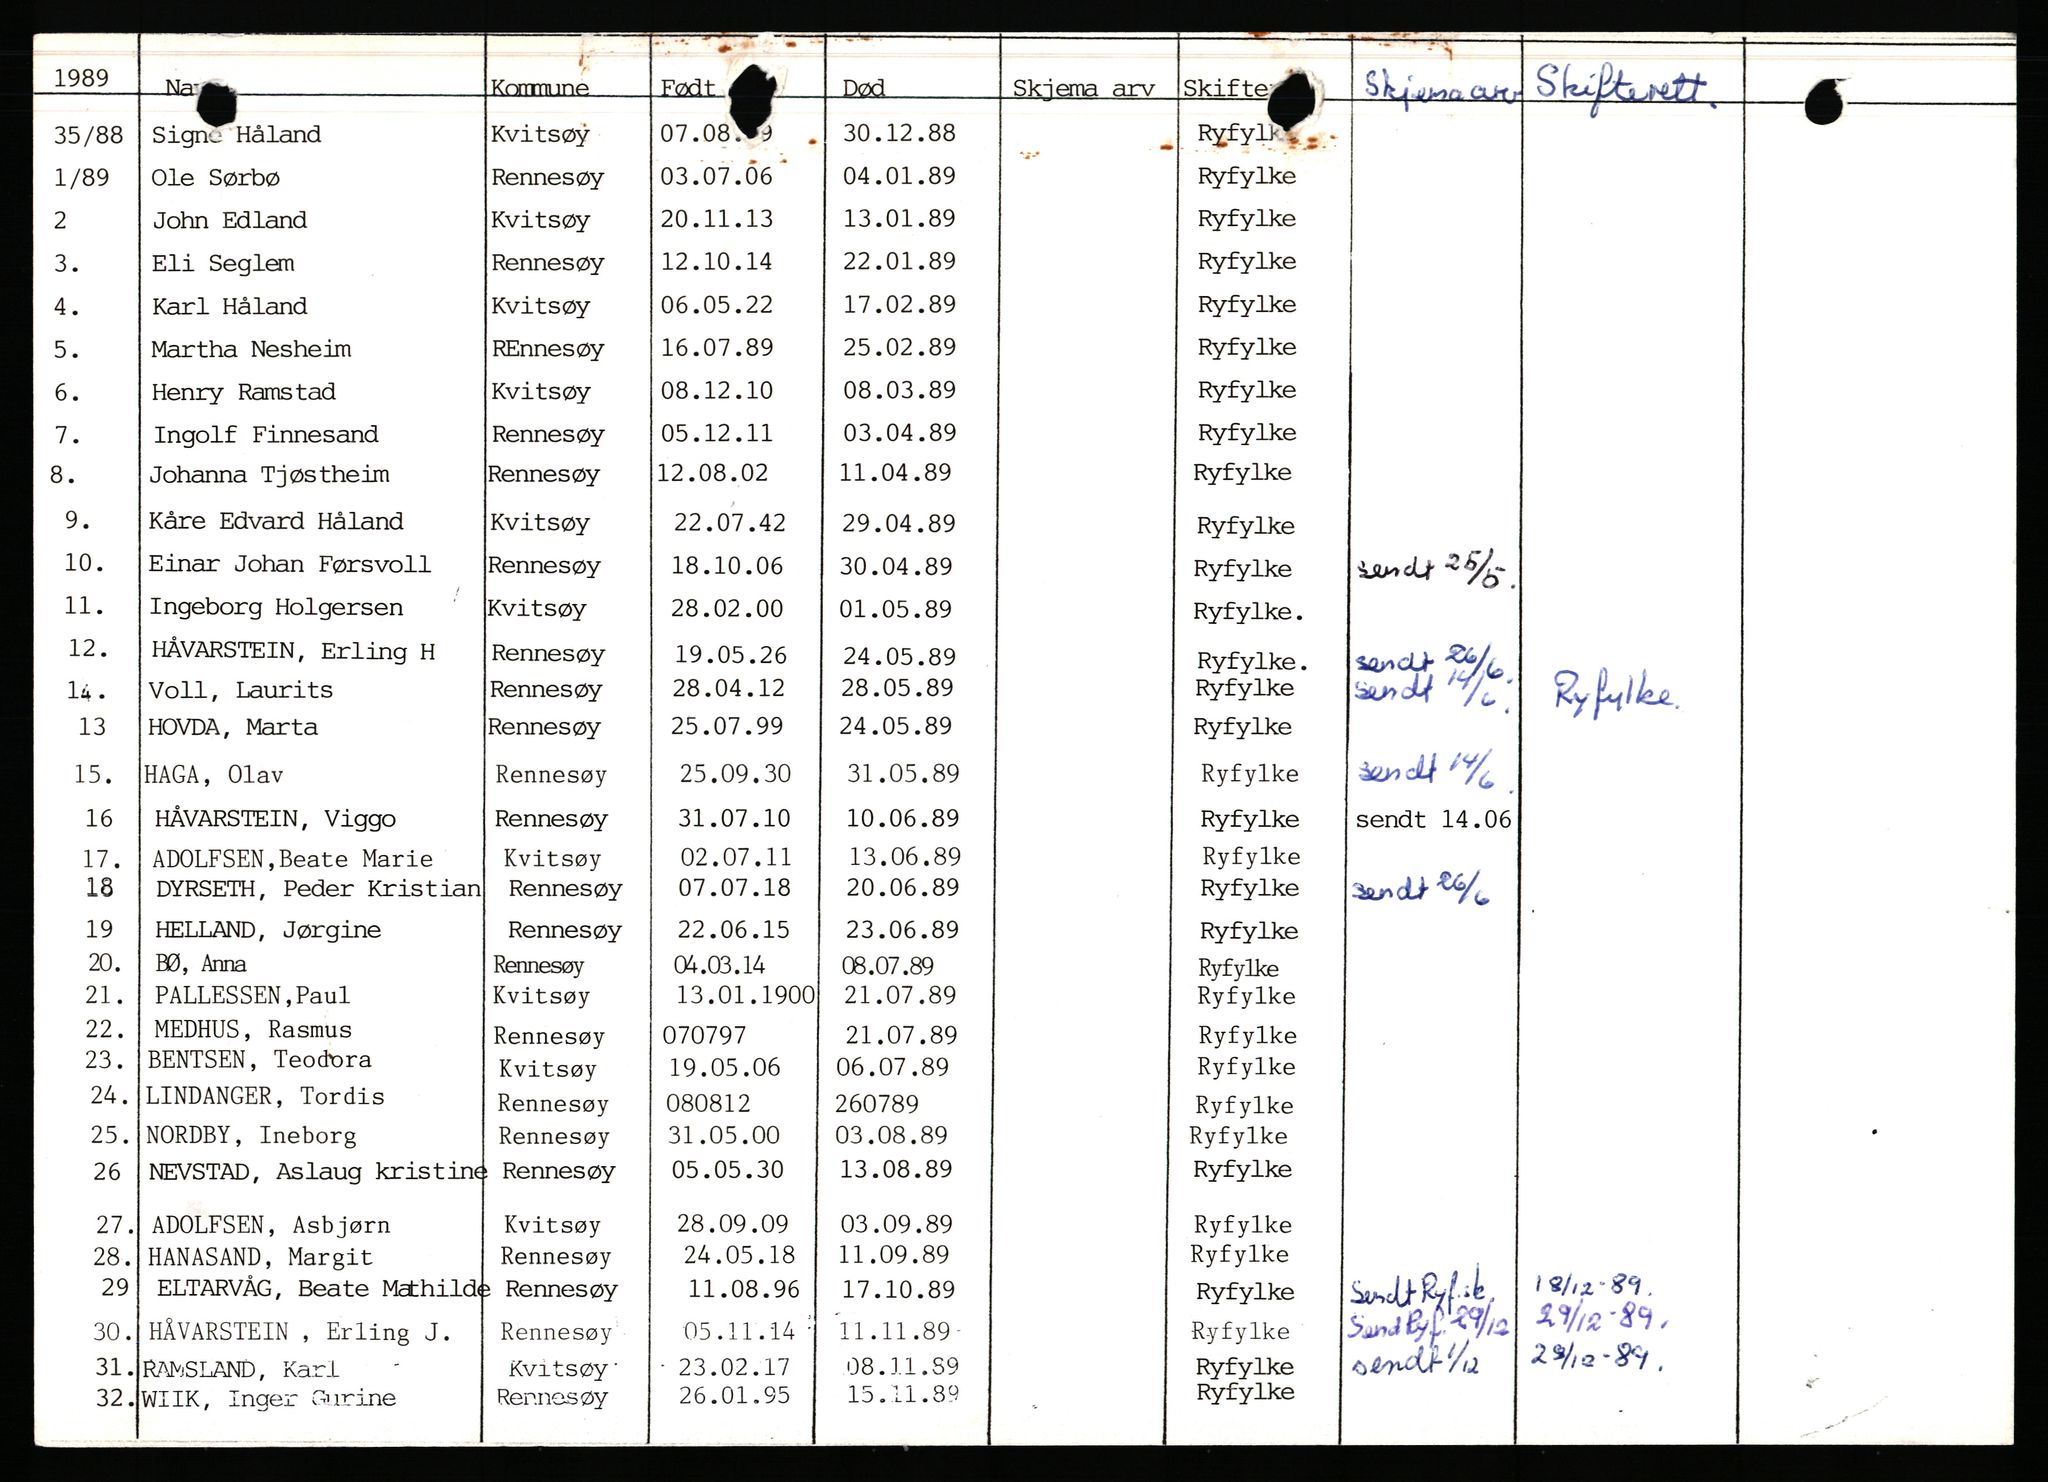 1989 Kommune Født Død Skjema arv Skjema arv Skifterett.
35/88 Signe Håland Kvitsøy 30.12.88 Ryfylke
1/89 Ole Sørbø Rennesøy 03.07.06 04.01.89 Ryfylke
2 John Edland Kvitsøy 20.11.13 13.01.89 Ryfylke
3. Eli Seglem Rennesøy 12.10.14 22.01.89 Ryfylke
4. Karl Håland Kvitsøy 06.05.22 17.02.89 Ryfylke
5. Martha Nesheim REnnesøy 16.07.89 25.02.89 Ryfylke
6. Henry Ramstad Kvitsøy 08.12.10 08.03.89 Ryfylke
7. Ingolf Finnesand Rennesøy 05.12.11 03.04.89 Ryfylke
8. Johanna Tjøstheim Rennesøy 12.08.02 11.04.89 Ryfylke
9. Kåre Edvard Håland Kvitsøy 22.07.42 29.04.89 Ryfylke
10. Einar Johan Førsvoll Rennesøy 18.10.06 30.04.89 Ryfylke sendt 25/5.
11. Ingeborg Holgersen Kvitsøy 28.02.00 01.05.89 Ryfylke.
12. HÅVARSTEIN, Erling H Rennesøy 19.05.26 24.05.89 Ryfylke. sendt 26/6.
14. Voll, Laurits Rennesøy 28.04.12 28.05.89 Ryfylke sendt 14/6. Ryfylke.
13 HOVDA, Marta Rennesøy 25.07.99 24.05.89 Ryfylke
15. HAGA, Olav Rennesøy 25.09.30 31.05.89 Ryfylke sendt 14/6.
16 HÅVARSTEIN, Viggo Rennesøy 31.07.10 10.06.89 Ryfylke sendt 14.06
17. ADOLFSEN,Beate Marie Kvitsøy 02.07.11 13.06.89 Ryfylke
18 DYRSETH, Peder Kristian Rennesøy 07.07.18 20.06.89 Ryfylke sendt 26/6
19 HELLAND, Jørgine Rennesøy 22.06.15 23.06.89 Ryfylke
20. BØ, Anna Rennesøy 04.03.14 08.07.89 Ryfylke
21. PALLESSEN,Paul Kvitsøy 13.01.1900 21.07.89 Ryfylke
22. MEDHUS, Rasmus Rennesøy 070797 21.07.89 Ryfylke
23. BENTSEN, Teodora Kvitsøy 19.05.06 06.07.89 Ryfylke
24. LINDANGER, Tordis Rennesøy 080812 260789 Ryfylke
25. NORDBY, Ineborg Rennesøy 31.05.00 03.08.89 Ryfylke
26 NEVSTAD, Aslaug kristine Rennesøy 05.05.30 13.08.89 Ryfylke
27. ADOLFSEN, Asbjørn Kvitsøy 28.09.09 03.09.89 Ryfylke
28. HANASAND, Margit Rennesøy 24.05.18 11.09.89 Ryfylke
29 ELTARVÅG, Beate Mathilde Rennesøy 11.08.96 17.10.89 Ryfylke Sendt 18/12-89.
30. HÅVARSTEIN , Erling J. Rennesøy 05.11.14 11.11.89 Ryfylke Send Ryf. 29/12 29/12-89.
31. RAMSLAND, Karl Kvitsøy 23.02.17 08.11.89 Ryfylke sendt 1/12 29/12-89.
32. WIIK, Inger Gurine Rennesøy 26.01.95 15.11.89 Ryfylke